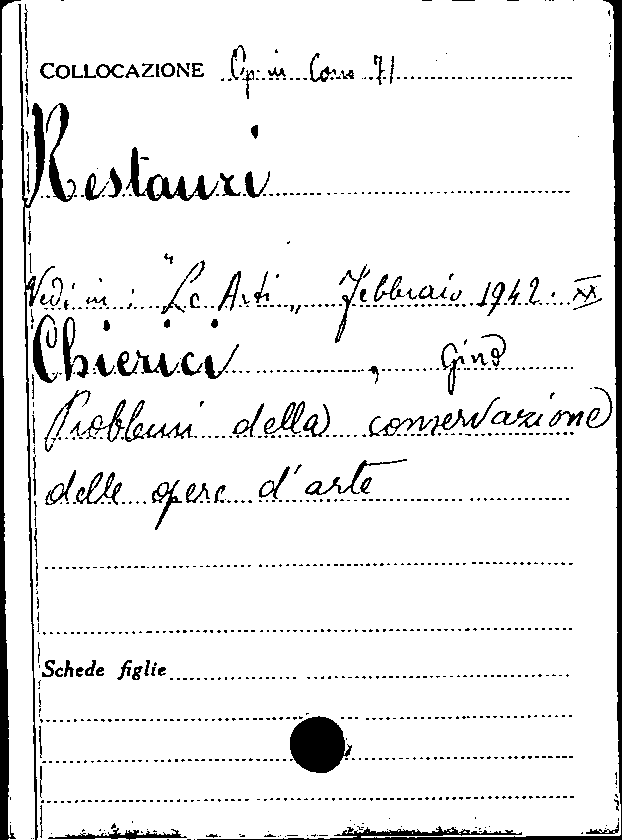 COLLOCAZIONE Op. in Cons 71
Restauri
Vedi in: "Le Arti" Febbraio 1942. XX
Chierici, Gino
Problemi della conservazione
delle opere d'arte
Schede figlie